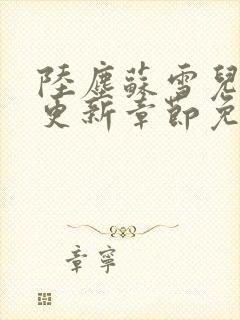 陸塵蘇雪兒
更新章節免
章寧